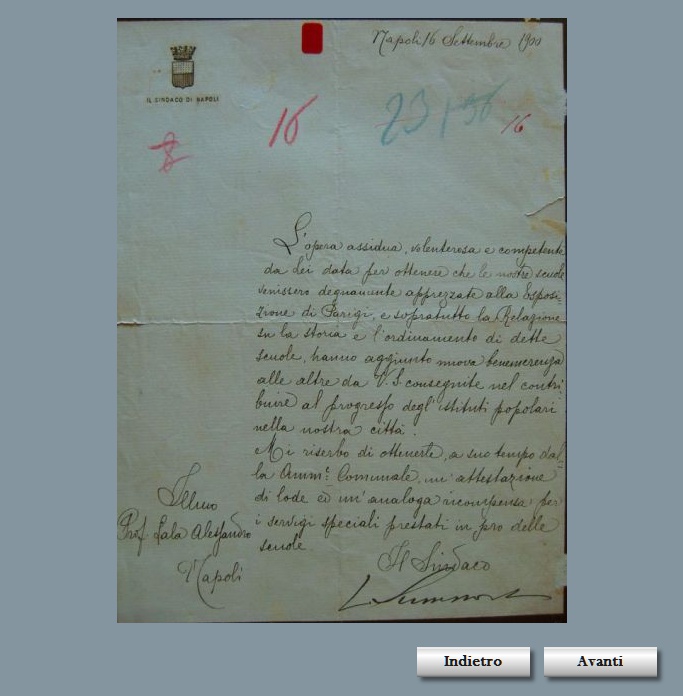 Napoli 16 Settembre 1900
IL SINDACO DI NAPOLI
8
16
23
16
L'opera assidua, volenterosa e competente
da Lei data per ottenere che le nostre scuole
venissero degnamente apprezzate alla Esposi-
zione di Parigi, e sopratutto la Relazione
su la storia e l'ordinamento di dette
scuole, hanno aggiunto nuova benemerenza
alle altre da V. S. conseguite nel contri-
buire al progresso degl'istituti popolari
nella nostra città.
Mi riserbo di ottenerle, a suo tempo dal-
la Amm.e Comunale, un'attestazione
di lode ed un'analoga ricompensa per
i servigi speciali prestati in pro delle
scuole
Il Sindaco
Illmo
Prof. Lala Alessandro
Napoli
Indietro
Avanti